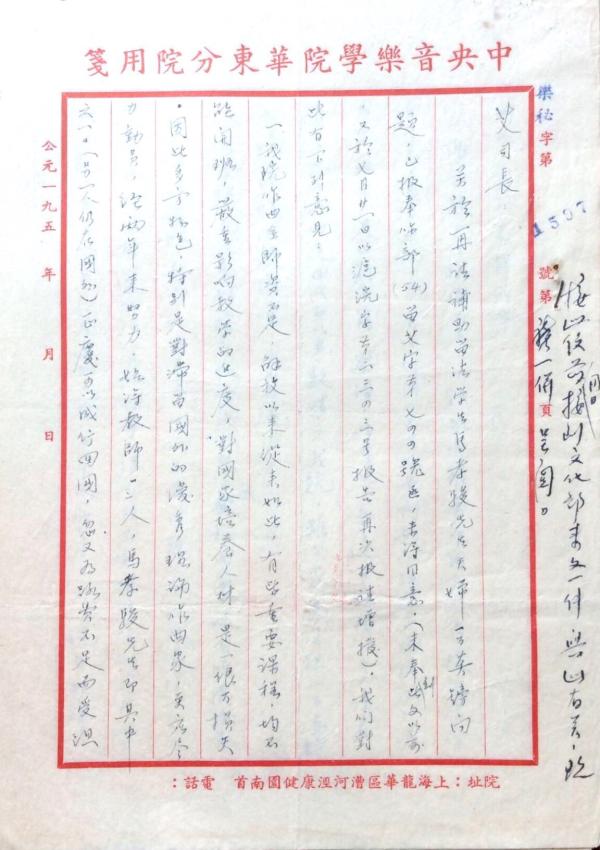 中央音樂學院華東分院用箋
樂秘字第 1507 號 第 頁
艾司長：
关於再法補助留法学生馬孝駿先生夫婦一万英鎊问
题，已报奉 部(54)留艾字第七〇〇號函，未得同意，(未奉此文以前
，又於七月廿一日以滬院字第六三〇三号报告再次报請增撥)，我们對
此有下列意見：
一、我院作曲系師資不足，解放以来從未如此，有些重要課程，均不
能開班，嚴重影响教学的进度，對國家培养人材，是一很大損失
。因此多方物色，特别是對滯留國外的優秀理論作曲家，更应尽
力動員，经兩年来努力，始得教師一三人，馬孝駿先生即其中
之一(另一人仍在國外)正慶可以成行回國，忽又為路費不足而受阻
公元一九五 年 月 日
接此 接到文化部来文一件與此有关，
一併呈閱。
院址：上海龍華區漕河涇康健園南首 電話：